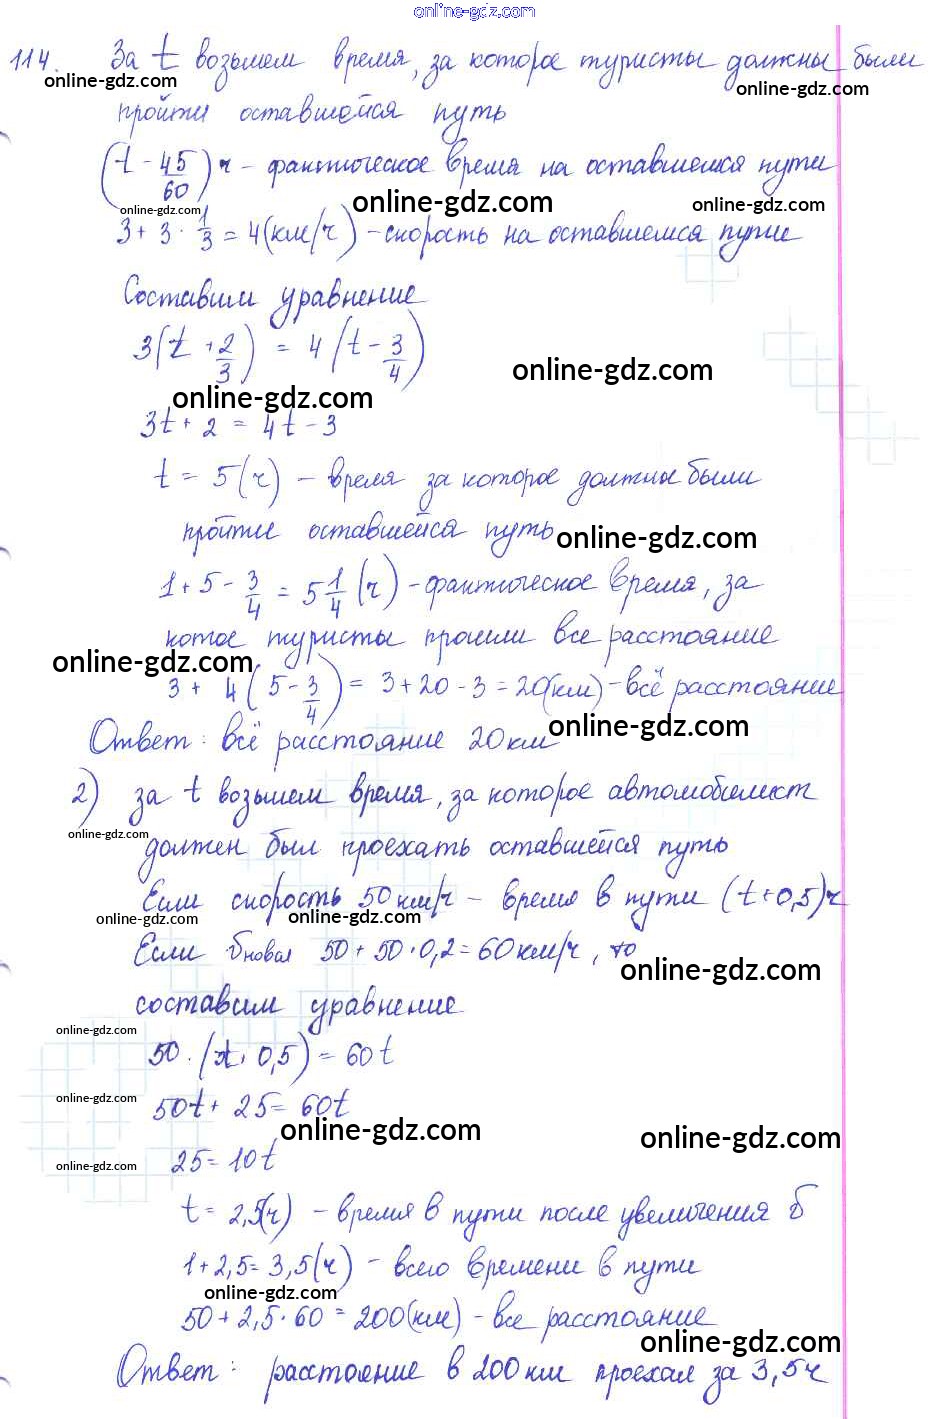 online-gdz.com
114. За t возьмем время, за которое туристы должны были
online-gdz.com online-gdz.com
пройти оставшейся путь
(t - 45/60) ч - фактическое время на оставшемся пути
online-gdz.com online-gdz.com online-gdz.com
3 + 3 · 1/3 = 4 (км/ч) - скорость на оставшемся пути
Составим уравнение
3(t + 2/3) = 4(t - 3/4)
online-gdz.com online-gdz.com
3t + 2 = 4t - 3
t = 5 (ч) - время за которое должны были
пройти оставшейся путь
online-gdz.com
1 + 5 - 3/4 = 5 1/4 (ч) - фактическое время, за
котое туристы прошли все расстояние
online-gdz.com
3 + 4(5 - 3/4) = 3 + 20 - 3 = 20(км) - всё расстояние
online-gdz.com
Ответ: всё расстояние 20 км
2) за t возьмем время, за которое автомобилист
online-gdz.com
должен был проехать оставшейся путь
Если скорость 50 км/ч - время в пути (t + 0,5)ч
online-gdz.com online-gdz.com
Если новая 50 + 50 · 0,2 = 60 км/ч, то
online-gdz.com
составим уравнение
online-gdz.com
50 · (t + 0,5) = 60t
online-gdz.com
50t + 25 = 60t
online-gdz.com online-gdz.com
25 = 10t
online-gdz.com
t = 2,5(ч) - время в пути после увеличения
1 + 2,5 = 3,5 (ч) - всего времени в пути
online-gdz.com
50 + 2,5 · 60 = 200(км) - все расстояние
online-gdz.com
Ответ: расстояние в 200 км проехал за 3,5ч